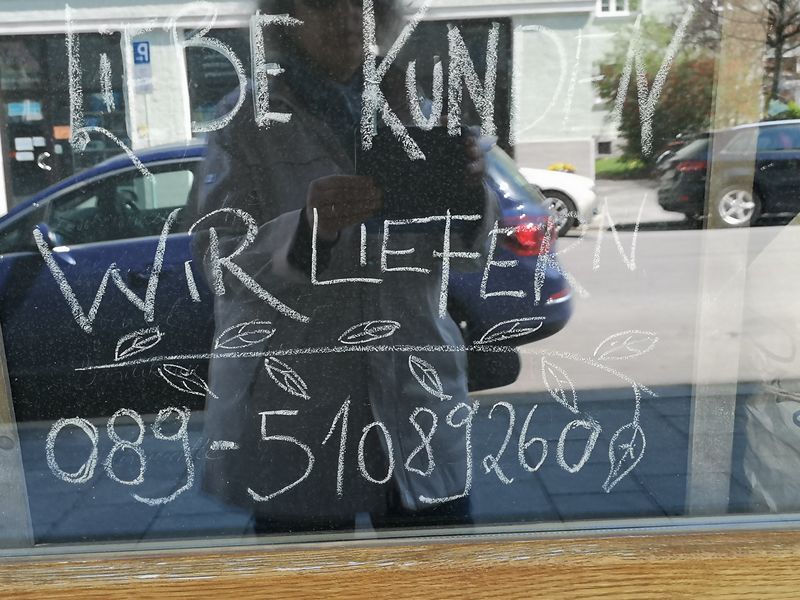 LiEBE KUNDEN
WiR LIEFERN
089-510892600